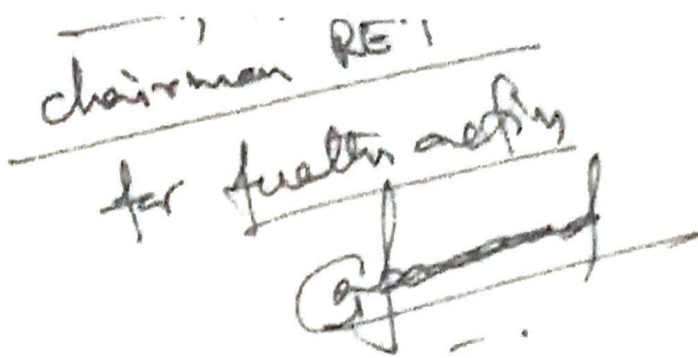 chairman RE
for further action